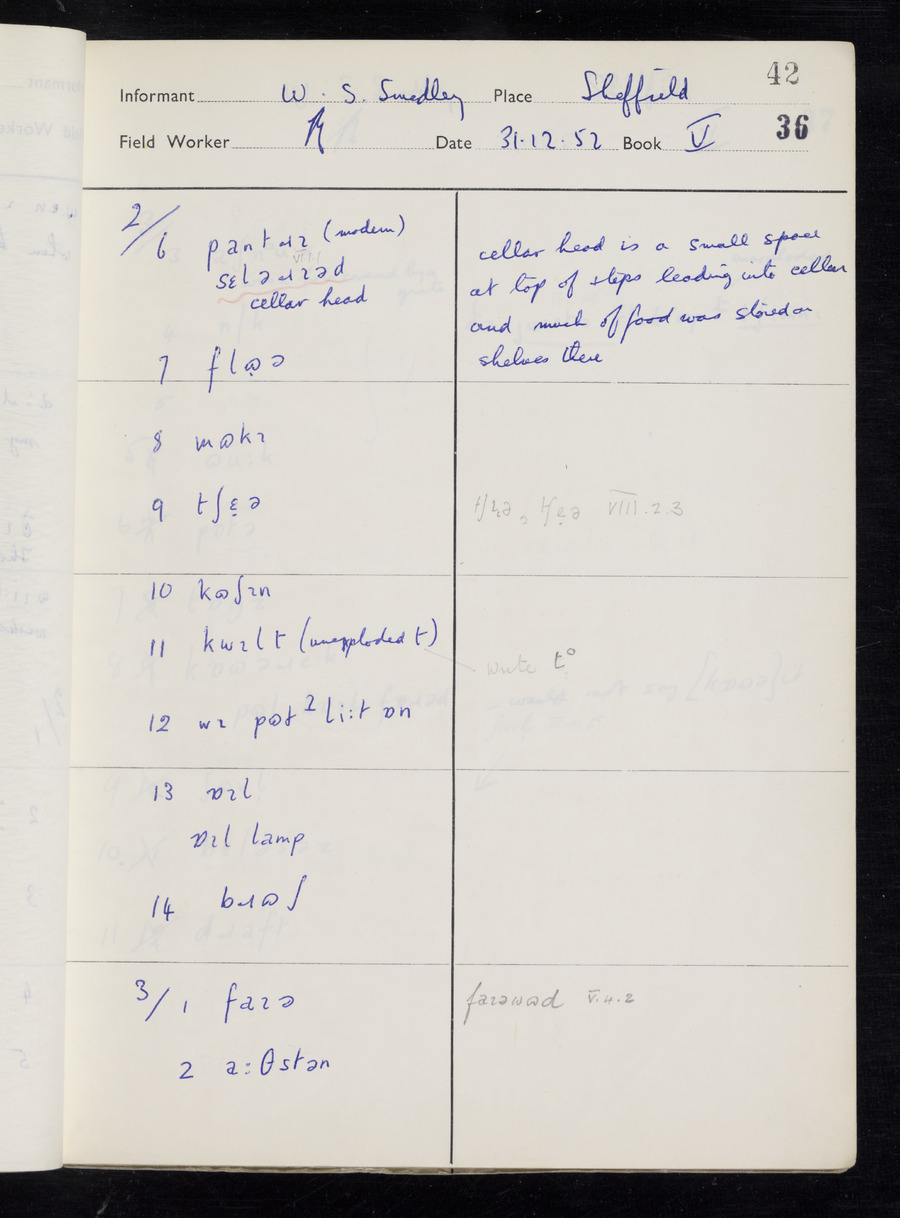 42
Informant W. S. Smedley Place Sheffield
36
Field Worker Date 31.12.52 Book V
2/6 pantɹɪ (modern)
sɛləɹɪəd
cellar head
cellar head is a small space
at top of steps leading into cellar
and much of food was stored on
shelves there
7 flɷə
8 mɷkɪ
9 tʃɛ̣ə
VIII.2.3
10 kɷʃɪn
11 kwɪlt (unexploded t)
write t°
12 wɪ pɷt ɪ liːt ɒn
13 ɒɪl
ɒɪl lamp
14 bɹɷʃ
3/1 faɪə
faɪəwɷd V.4.2
2 aːθstən